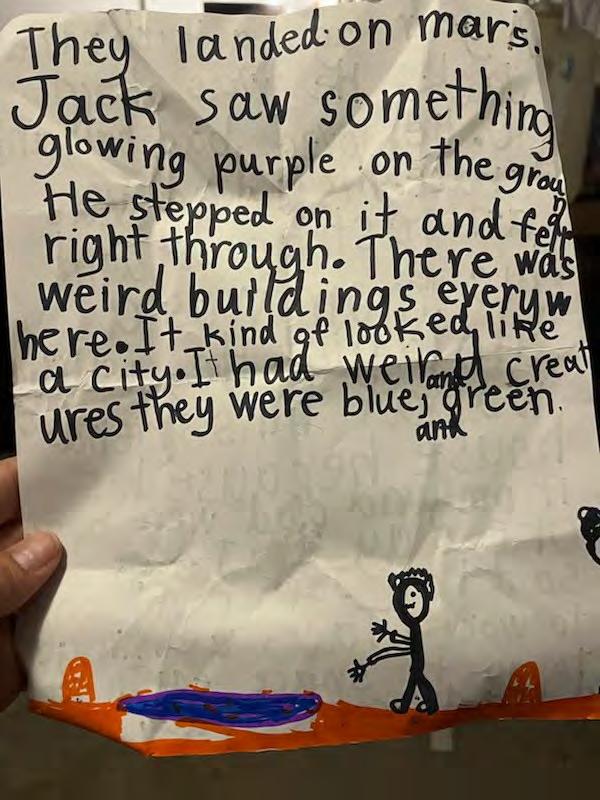 They landed on mars.
Jack saw something
glowing purple on the ground
He stepped on it and fell
right through. There was
weird buildings everyw
here. It kind of looked like
a city. It had weird and creat
ures they were blue, green.
and